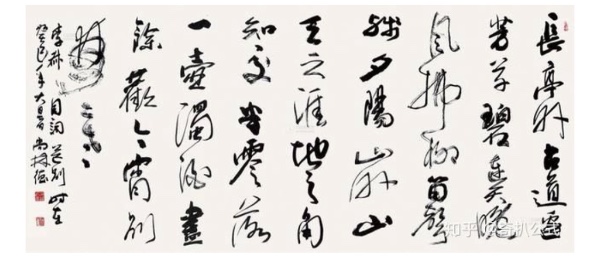 長亭外古道邊
芳草碧連天晚
風拂柳笛聲
殘夕陽山外山
天之涯地之角
知交半零落
一壺濁酒盡
餘歡今宵別
夢寒
李叔同詞送別時在
癸巳年
知乎 @奇扒公式